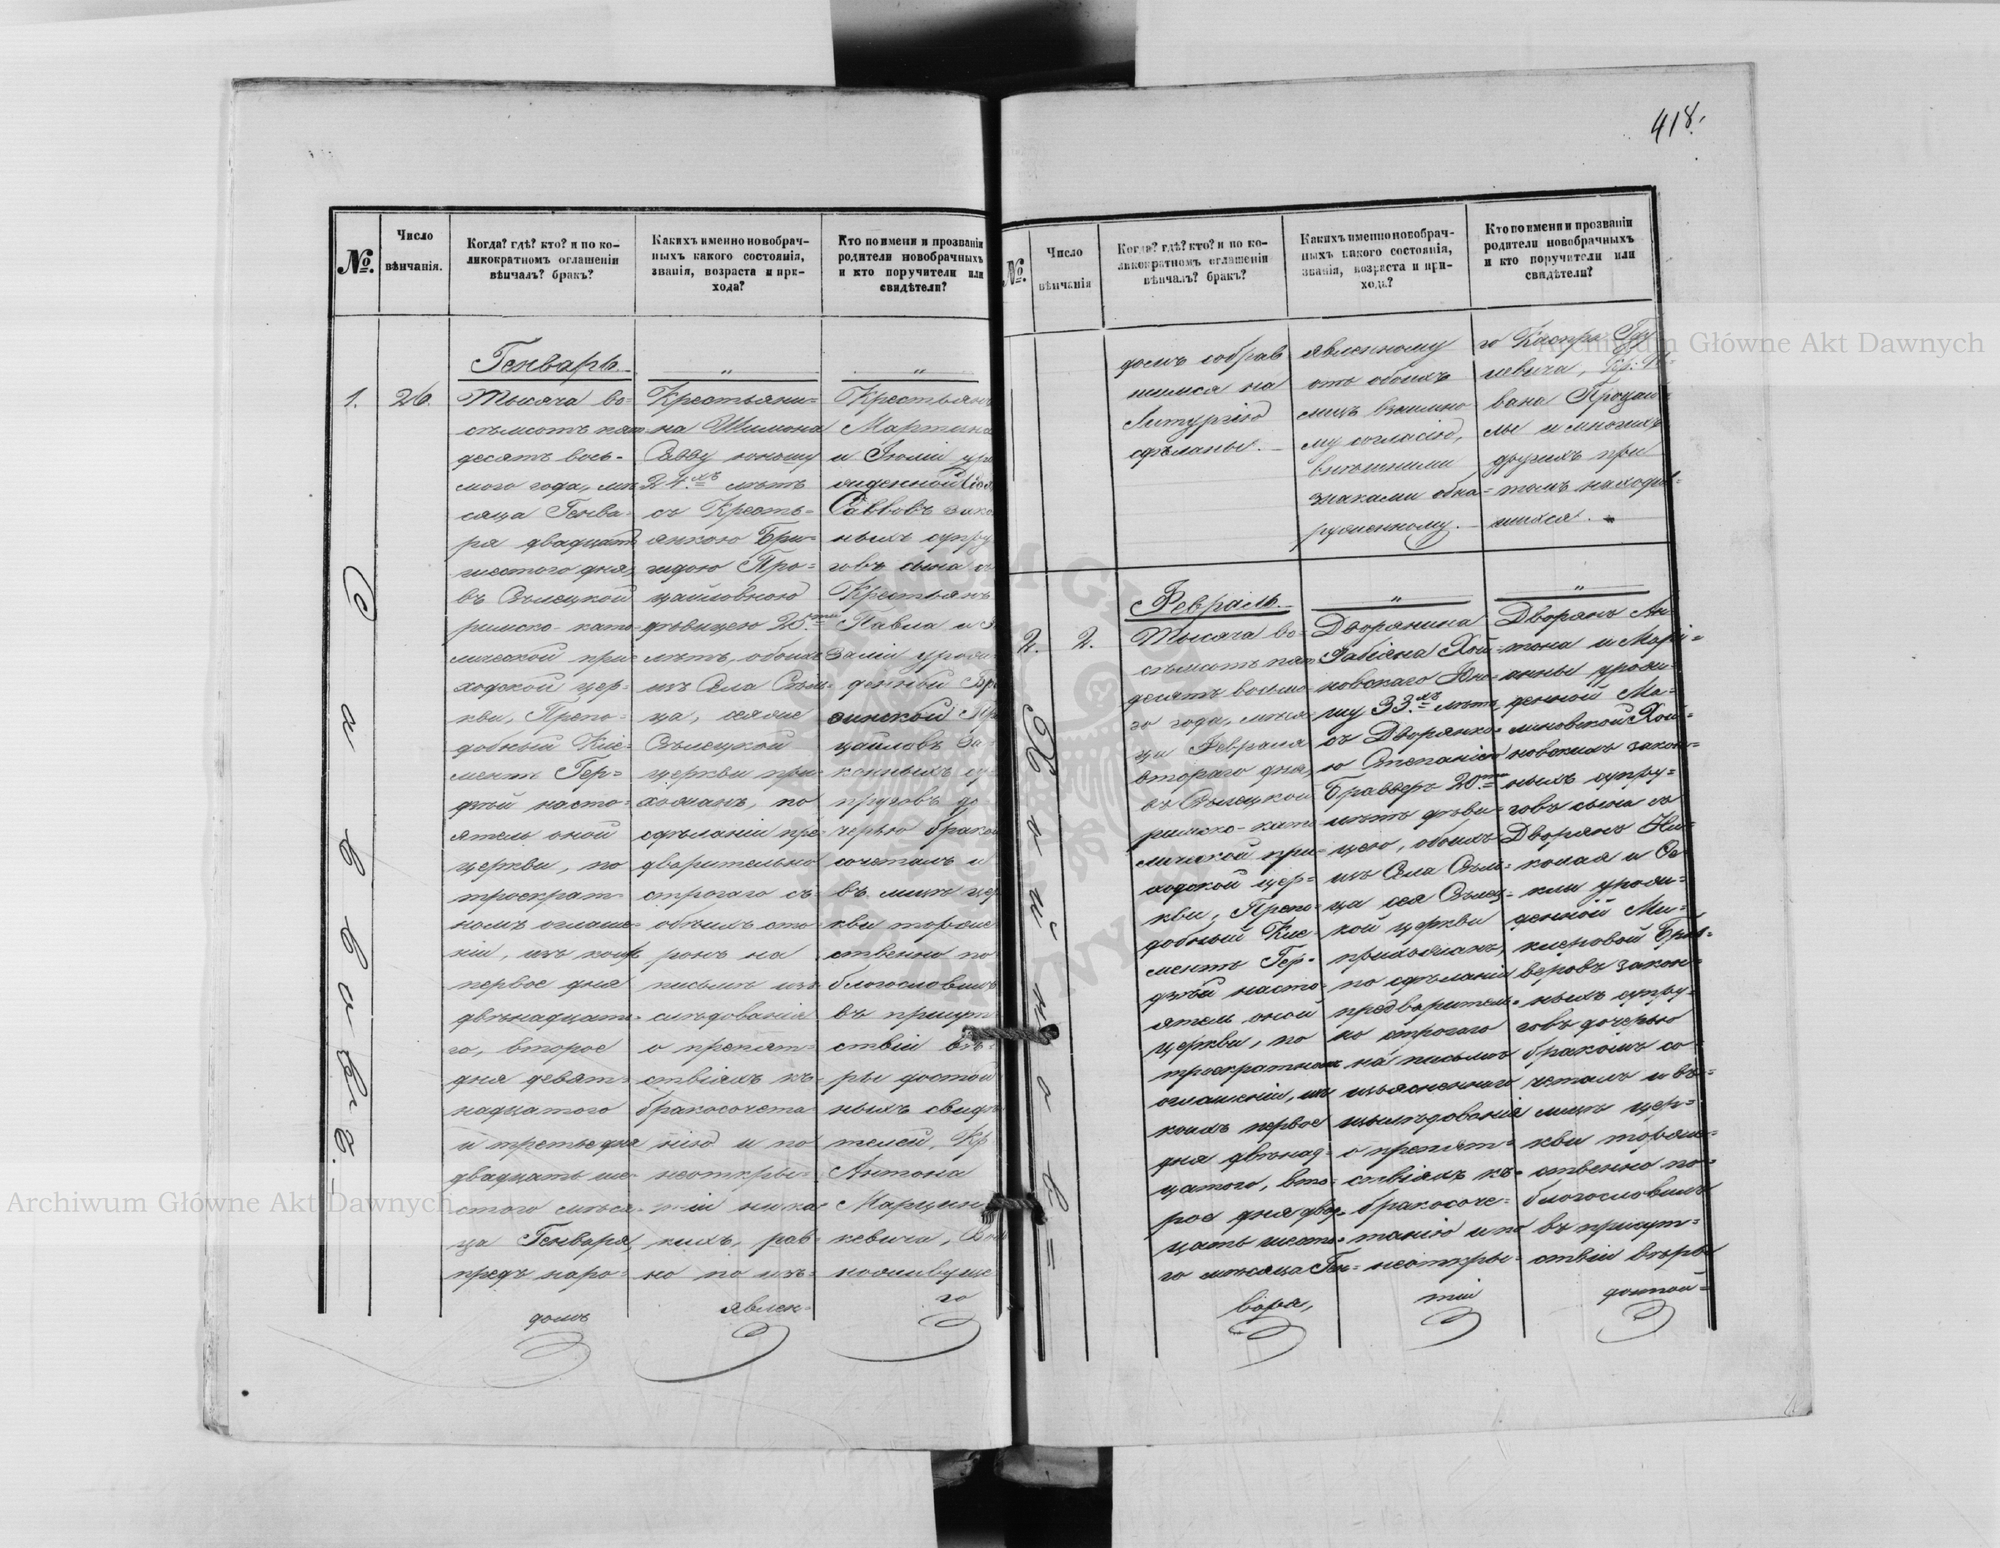 418.
№.
Число
вѣнчанія.
Когда? гдѣ? кто? и по ко-
ликократномъ оглашеніи
вѣнчалъ? бракъ?
Какихъ именно новобрач-
ныхъ какого состоянія,
званія, возраста и при-
хода?
Кто по имени и прозванію
родители новобрачныхъ
и кто поручители или
свидѣтели?
Генварь.
1.
26.
Тысяча во-
сьмсотъ пять
десятъ вось-
мого года, мѣ
сяца Генва-
ря двадцать
шестого дня,
въ Сѣлецкой
римско-като
лической при-
ходской цер-
кви, Препо-
добный Кле-
ментъ Гер-
дѣй насто-
ятель оной
церкви, по
троекрат-
номъ оглаше-
ніи, изъ коихъ
первое дня
двѣнадцата-
го, второе
дня девят-
надцатого
и третье дня
двадцать ше-
стого мѣся-
ца Генваря,
предъ наро-
домъ
Крестьяни-
на Шимона
Савву юношу
24.хъ лѣтъ
съ Кресть-
янкою Бри-
гидою Про-
цайловною
дѣвицею 20.ти
лѣтъ, обоихъ
изъ Села Сѣль-
ца, сеяже
Сѣлецкой
церкви при-
хожанъ, по
сдѣланіи пре-
дварительно
строгаго съ
обѣихъ сто-
ронъ на
письмѣ изъ
слѣдованія
о препят-
ствіяхъ къ
бракосочета-
нію и по
неоткры-
тіи ника-
кихъ, рав-
но по изъ-
явлен-
Крестьянъ
Мартина
и Юліи уро
жденной
Саввовъ зако
ныхъ супру
говъ сына съ
Крестьянъ
Павла и
заліи урож-
денной
цайловъ За-
конныхъ су-
пруговъ до
черью бракомъ
сочеталъ и
въ лицѣ цер
кви торже
ственно по
благословилъ
въ присут
ствіи вѣ-
ры достой
ныхъ свидѣ
телей, Кр
Антона
Марцин
кевича,
ножившуще
го
Саввове.
№.
Число
вѣнчанія
Когда? гдѣ? кто? и по ко-
ликократномъ оглашеніи
вѣнчалъ? бракъ?
Какихъ именно новобрач-
ныхъ какого состоянія,
званія, возраста и при-
хода?
Кто по имени и прозванію
родители новобрачныхъ
и кто поручители или
свидѣтели?
домъ собрав
шимся на
Литургію
сдѣланы.
явленному
отъ обоихъ
лицъ взаимно
му согласію,
внѣшними
знаками обна-
руженному.
го Каспра
левича, Кр: И-
вана Процай
лы и многихъ
другихъ при
томъ находив
шихся.
Февраль.
2.
2.
Тысяча во-
сьмсотъ пять
десятъ восьмо-
го года, мѣся-
ца Февраля
второго дня,
въ Сѣлецкой
римско-като
лической при-
ходской цер-
кви, Препо-
добный Кле-
ментъ Гер-
дѣй насто-
ятель оной
церкви, по
троекратномъ
оглашеніи, изъ
коихъ первое
дня двѣнад-
цатого, вто-
рое дня двад-
цать шесто-
го мѣсяца Ген-
варя,
Дворянина
Фабіяна Хой-
новскаго Юно-
шу 33.хъ лѣтъ
съ Дворянко-
ю Степаніею
Браверъ 20.ти
лѣтъ дѣви-
цею, обоихъ
изъ Села Сѣль-
ца сея Сѣлец-
кой церкви
прихожанъ,
по сдѣланіи
предваритель-
но строгаго
на письмѣ
изъясненнаго
изслѣдованія
о препят-
ствіяхъ къ
бракосоче-
танію и по
неоткры-
тіи
Дворянъ Ан-
тона и Марі-
анны урож-
денной Ма-
линовской Хой-
новскихъ закон-
ныхъ супру-
говъ сына съ
Дворянъ Ни-
колая и Ѳе-
клы урож-
денной Ми-
кловой Бра-
веровъ закон-
ныхъ супру-
говъ дочерью
бракомъ со-
четалъ и въ
лицѣ цер-
кви торже-
ственно по-
благословилъ
въ присут-
ствіи вѣры
достой-
Хойнове
Archiwum Główne Akt Dawnych
Archiwum Główne Akt Dawnych